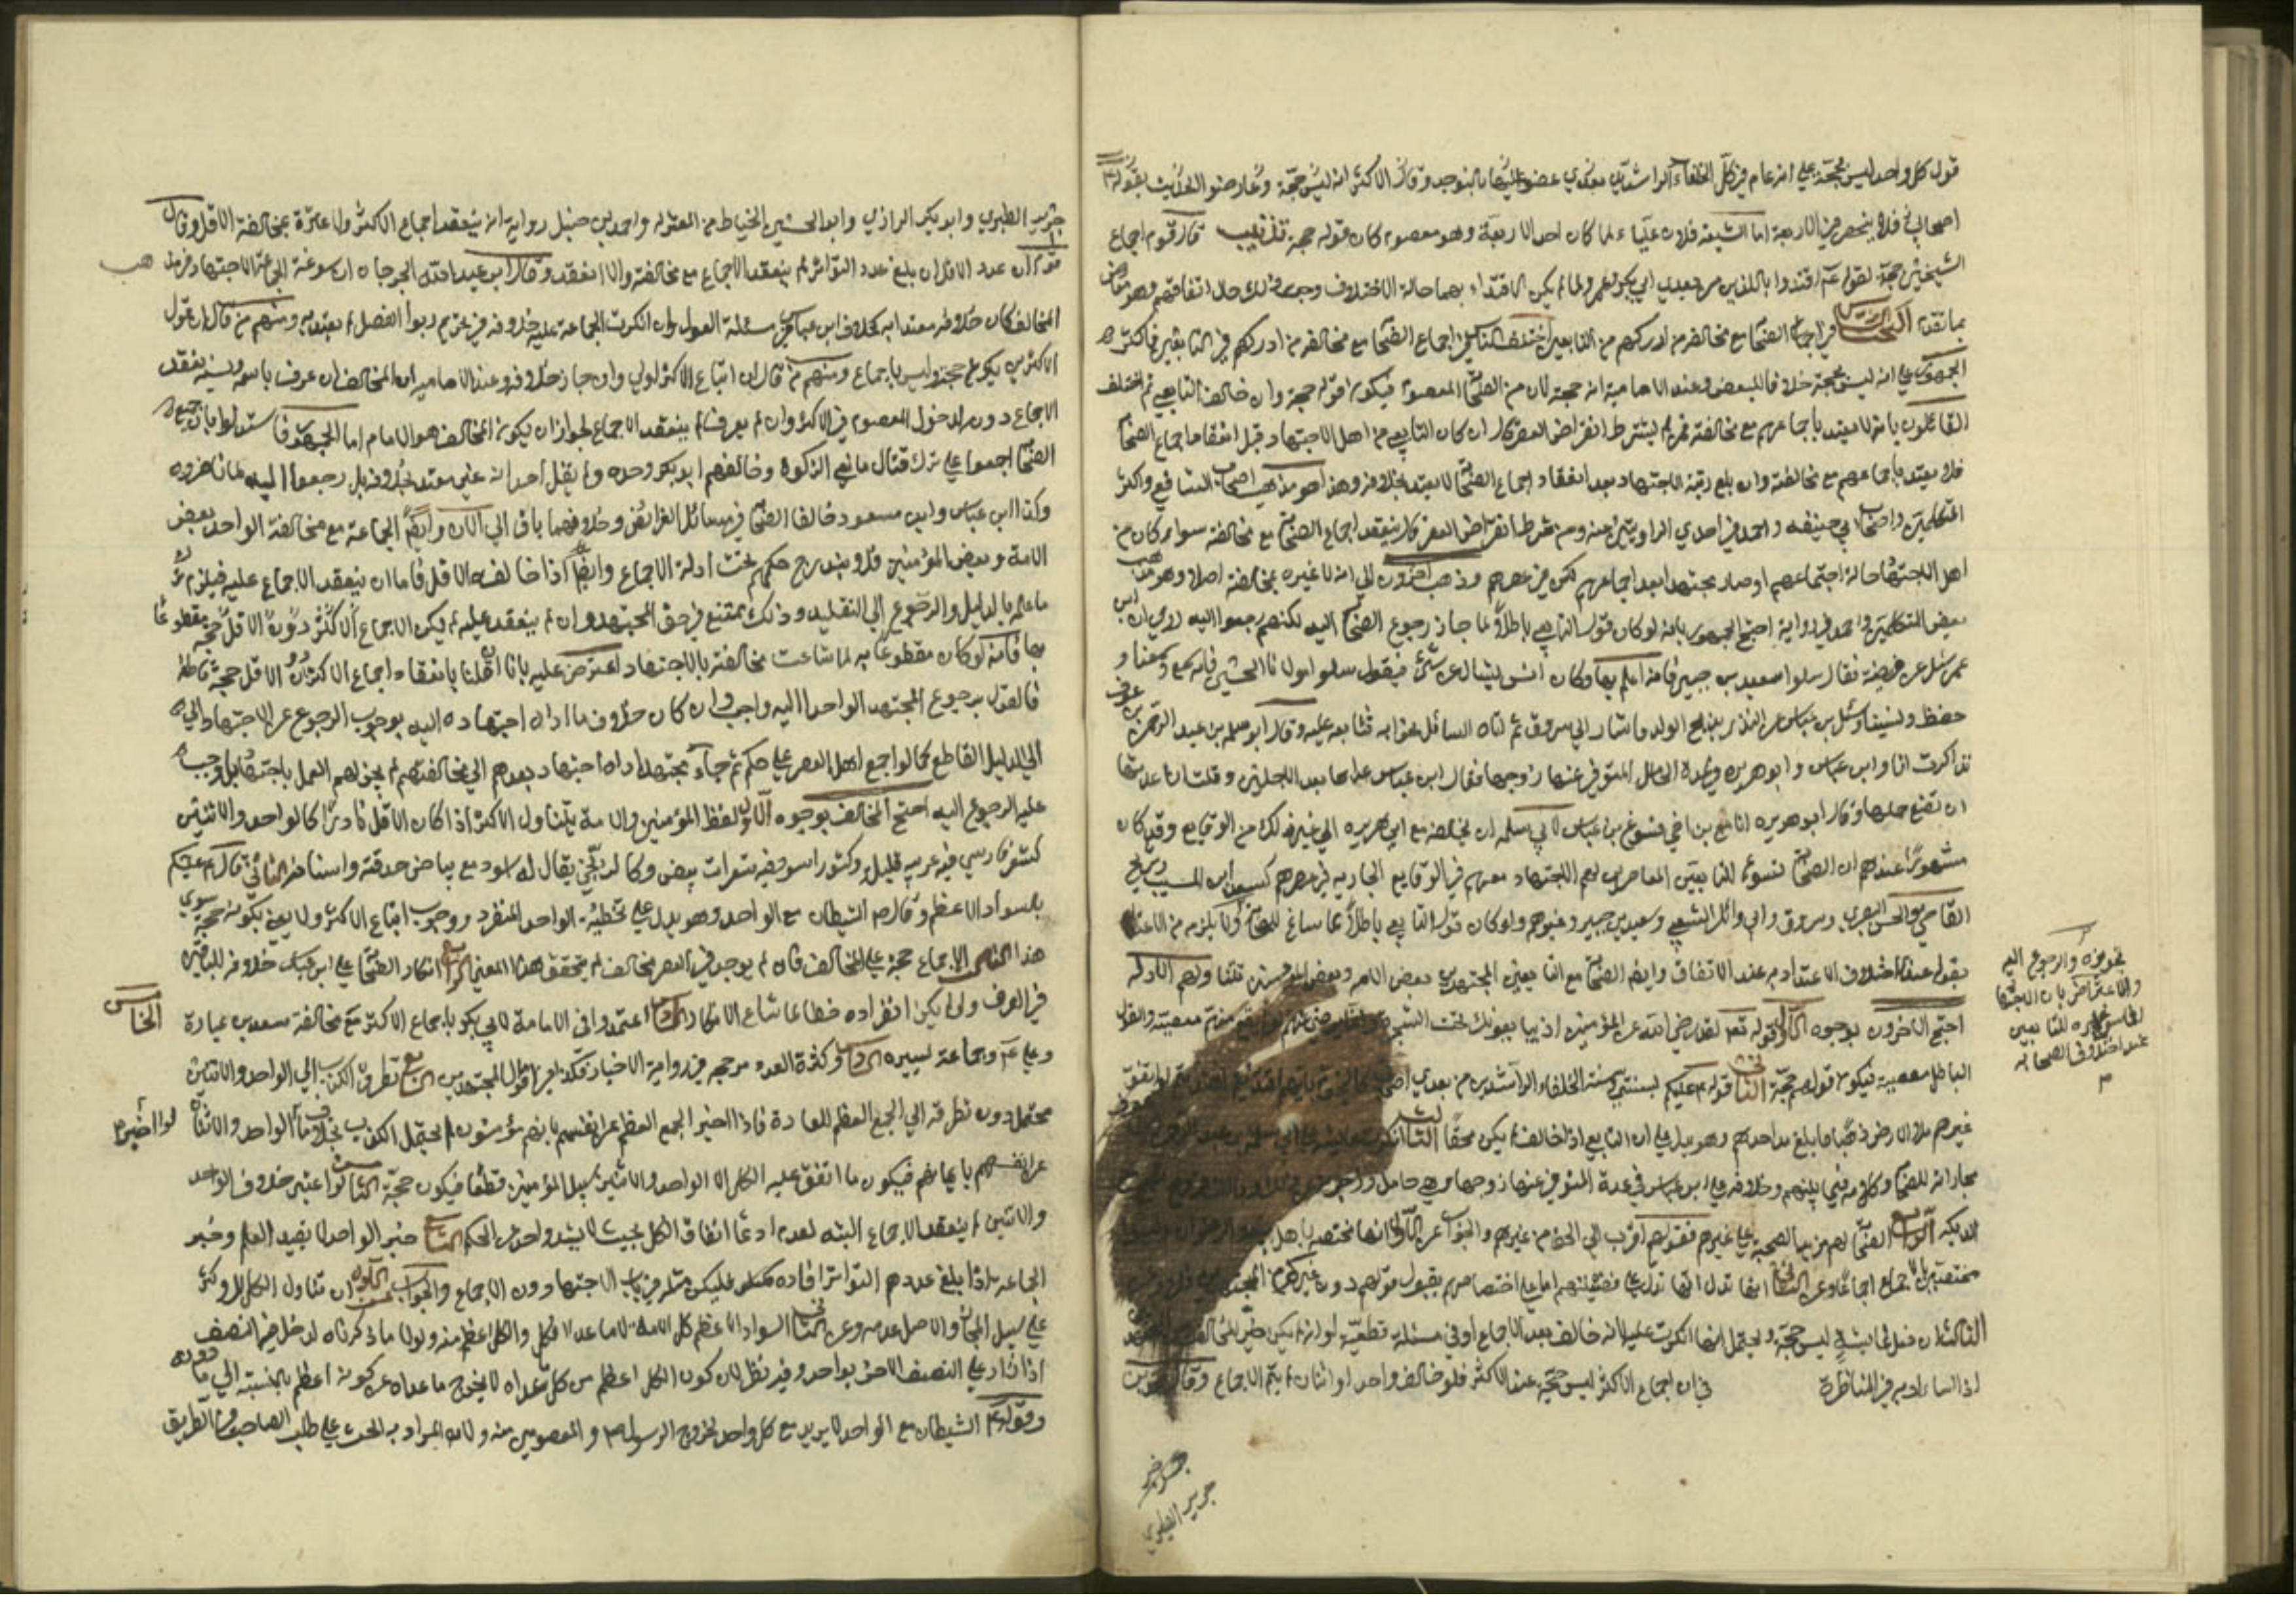 قول كل واحد ليس بحجة على انه عام في كل الخلفاء الراشدين بعدي عضوا عليها بالنواجد وقال الاكثر انه ليس حجة وعارضوا الحديث بقوله
اصحابي فلا ينحصر في الاربعة اما الشيعة فلان عليا ء لما كان احد الاربعة وهو معصوم كان قوله حجة تذنيب قال قوم اجماع
الشيخين حجة لقوله عم اقتدوا باللذين من بعدي ابي بكر وعمر ولما لم يكن الاقتداء بهما حالة الاختلاف وجب ذلك حال اتفاقهم وهو معارض
بما تقدم البحث في اجماع الصحابة مع مخالفة من ادركهم من التابعين اختلف الناس في اجماع الصحابة مع مخالفة من ادركهم من التابعين فاكثر
الجمهور على انه ليس بحجة خلافا لبعض وعند الامامية انه حجة لان من الصحابة المعصوم فيكون قوله حجة وان خالف التابعي ثم اختلف
القائلون بانه لا يعتد باجماعهم مع مخالفته فمن لم يشترط انقراض العصر قال ان كان التابعي من اهل الاجتهاد قبل انعقاد اجماع الصحابة
فلا يعتد باجماعهم مع مخالفته وان بلغ رتبة الاجتهاد بعد انعقاد اجماع الصحابة لا يعتد بخلافه وهذا هو مذهب اصحاب الشافعي واكثر
المتكلمين واصحاب ابي حنيفه واحمد في احدى الروايتين عنه ومن شرط انقراض العصر قال لا ينعقد اجماع الصحابة مع مخالفته سواء كان من
اهل الاجتهاد حالة اجتماعهم او صار مجتهدا بعد اجماعهم لكن في عصرهم وذهب اخرون الى انه لا عبرة بمخالفته اصلا وهو مذهب
بعض المتكلمين واحمد في رواية احتج الجمهور بانه لو كان قول التابعي باطلا لما جاز رجوع الصحابة اليه لكنهم رجعوا اليه روي ان ابن
عمر سئل عن فريضة فقال سلوا سعيد بن جبير فانه اعلم بها وكان انس ليسال عن شئ فيقول سلوا مولانا الحسن فانه سمع وسمعنا و
حفظ ونسينا وسئل بن عباس عن النذر بذبح الولد فاشار الى مسروق ثم اتاه السائل بجوابه فتابعه عليه وقال ابو سلمة بن عبد الرحمن بن عوف
تذاكرت انا وابن عباس وابو هريرة في عدة الحامل المتوفى عنها زوجها فقال ابن عباس عدتها بعد الاجلين وقلت انا عدتها
ان تضع حملها وقال ابو هريره انا مع بن اخي فسوغ بن عباس لابي سلمه ان يخالفه مع ابي هريره الى غير ذلك من الوقايع وقد كان
مشهورا عندهم ان الصحابة تسوغ للتابعين المعاصرين لهم الاجتهاد معهم في الوقايع الجارية في عصرهم كسعيد بن المسيب وشريح
القاضي والحسن البصري ومسروق وابي وائل والشعبي وسعيد بن جبير وغيرهم ولو كان قول التابعي باطلا لما ساغ للصحابة ولا يلزم من الاعتداد
بقوله عند الاختلاف الاعتداد به عند الاتفاق وايضا الصحابة مع التابعين المجتهدين بعض الامه وبعض المؤمنين فلا تتناولهم الادله
احتج الاخرون بوجوه الاول قوله تعالى لقد رضي الله عن المؤمنين اذ يبايعونك تحت الشجرة
الباطل معصية فيكون قولهم حجة الثاني قوله عم عليكم بسنتي وسنة الخلفاء الراشدين من بعدي اصحابي كالنجوم بايهم اقتديتم اهتديتم لو انفق
غيرهم ملا الارض ذهبا ما بلغ مد احدهم وهو يدل على ان التابعي اذا خالف لم يكن محقا الثالث انكرت عايشة على ابي سلمة بن عبد الرحمن
مجاراته للصحابة وكلامه فيما بينهم وخلافه على ابن عباس في عدة المتوفى عنها زوجها وهي حامل
الديكه الرابع الصحابة لهم مزية الصحبة على غيرهم فقولهم اقرب الى الحق من غيرهم والجواب عن الاول انها مختصة باهل بيعة الرضوان
مختصة بالاجماع اجماعا وعن الثاني انها تدل على فضيلتهم اما على اختصاصهم بقبول قولهم دون غيرهم
الثالث ان فعل عايشة ليس حجة ويحتمل انها انكرت عليه لانه خالف بعد الاجماع او في مسئلة قطعية او انه لم يكن
اذ الساذاديه في المناظرة في ان اجماع الاكثر ليس حجة عند الاكثر فلو خالف واحد او اثنان لم يتم الاجماع وقال
تجويزه والرجوع اليه
والاعتراض بان الاجتهاد
عند اختلاف الصحابه
جرير الطبري
جرير الطبري وابو بكر الرازي وابو الحسين الخياط من المعتزله واحمد بن حنبل رواية انه ينعقد اجماع الاكثر ولا عبرة بمخالفة الاقل وقال
قوم ان عدد الاقل ان بلغ عدد التواتر لم ينعقد الاجماع مع مخالفته والا انعقد وقال ابو عبد الله الجرجاني ان سوغت الجماعة الاجتهاد في مذهب
المخالف كان خلافه معتدا به كخلاف ابن عباس في مسئلة العول وان انكرت الجماعة عليه خلافه في تحريم ربوا الفضل لم يعتد به ومنهم من قال ان قول
الاكثرين يكون حجة وليس باجماع ومنهم من قال ان اتباع الاكثر اولى وان جاز خلافه وعند الامامية ان المخالف ان عرف باسمه ونسبه انعقد
الاجماع دونه لدخول المعصوم في الاكثر وان لم يعرف لم ينعقد الاجماع لجواز ان يكون المخالف هو الامام اما الجمهور فاستدلوا بان جميع
الصحابة اجمعوا على ترك قتال مانعي الزكوة وخالفهم ابو بكر وحده ولم يقل احد انه غير معتد بخلافه بل رجعوا اليه لما ناظروه
وكذا ابن عباس وابن مسعود خالفا الصحابة في مسائل الفرائض وخلافهما باق الى الآن وايضا الجماعة مع مخالفة الواحد بعض
الامة وبعض المؤمنين فلا يندرج حكمهم تحت ادلة الاجماع وايضا اذا خالف الاقل فاما ان ينعقد الاجماع عليه فيلزم ترك
ما علمه بالدليل والرجوع الى التقليد وذلك ممتنع في حق المجتهد وان لم ينعقد عليه لم يكن الاجماع الاكثر دون الاقل حجة مقطوعا
بها فانه لو كان مقطوعا به لما ساغت مخالفته بالاجتهاد اعترض عليه بانا ان قلنا بانعقاد اجماع الاكثر دون الاقل حجة قاطعة
فالقول برجوع المجتهد الواحد اليه واجب وان كان خلاف ما اداه اجتهاده اليه بوجوب الرجوع عن الاجتهاد
الى الدليل القاطع كما لو اجمع اهل العصر على حكم ثم جاء مجتهد اداه اجتهاد بعدهم الى مخالفتهم لم يجز لهم العمل باجتهاده بل وجب
عليه الرجوع اليه احتج المخالف بوجوه الاول لفظ المؤمنين والامة يتناول الاكثر اذا كان الاقل نادرا كالواحد والاثنين
كشعر فارسي فيه عربية قليلة وكثور اسود فيه شعرات بيض وكالزنجي يقال له اسود مع بياض حدقته واسنانه الثاني قال عم عليكم
بالسواد الاعظم وقال عم الشيطان مع الواحد وهو يدل على تخطئة الواحد المنفرد ووجوب اتباع الاكثر ولا يعني بكونه حجة سوى
هذا الثالث الاجماع حجة على المخالف فان لم يوجد في العصر مخالف لم يتحقق هذا المعنى الرابع انكار الصحابة على ابن عباس خلافه للباقين
في الصرف ولو لم يكن انفراده خطا لما شاع الانكار الخامس اعتمدوا في الامامة لابي بكر باجماع الاكثر مع مخالفة سعد بن عبادة
وعلي عم وجماعة يسيرة السادس كثرة العدد مرجح في رواية الاخبار فكذا في اقوال المجتهدين السابع تطرق الكذب الى الواحد والاثنين
محتمل دون تطرقه الى الجمع العظيم للعادة فاذا اخبر الجمع العظيم عن انفسهم بانهم مؤمنون لم يحتمل الكذب بخلاف الواحد والاثنان لو اخبرا
عن انفسهم بايمانهم فيكون ما اتفق عليه الكل الا الواحد والاثنين سبيل المؤمنين قطعا فيكون حجة الثامن لو اعتبر خلاف الواحد
والاثنين لم ينعقد الاجماع البتة لعدم ادعا اتفاق الكل بحيث لا يشذ واحد من الحكم التاسع خبر الواحد لا يفيد العلم وخبر
الجماعة اذا بلغ عددهم التواتر افاده فليكن مثله في باب الاجتهاد ون الاجماع والجواب عن الاول ان تناول الكل للاكثر
على سبيل المجاز والاصل عدمه وعن الثاني السواد الاعظم كل الامة لان ما عدا الكل والكل اعظم منه ولولا ما ذكرناه لدخل فيه النصف
اذا زاد على النصف الاخر بواحد وفيه نظر لان كون الكل اعظم من كل ما عداه لا يخرج ما عداه عن كونه اعظم بالنسبة الى ما دونه
وقوله عم الشيطان مع الواحد لا يريد مع كل واحد لخروج الرسول عم والمعصومين منه ولان المراد به الحث على طلب الصاحب في الطريق
الخامس